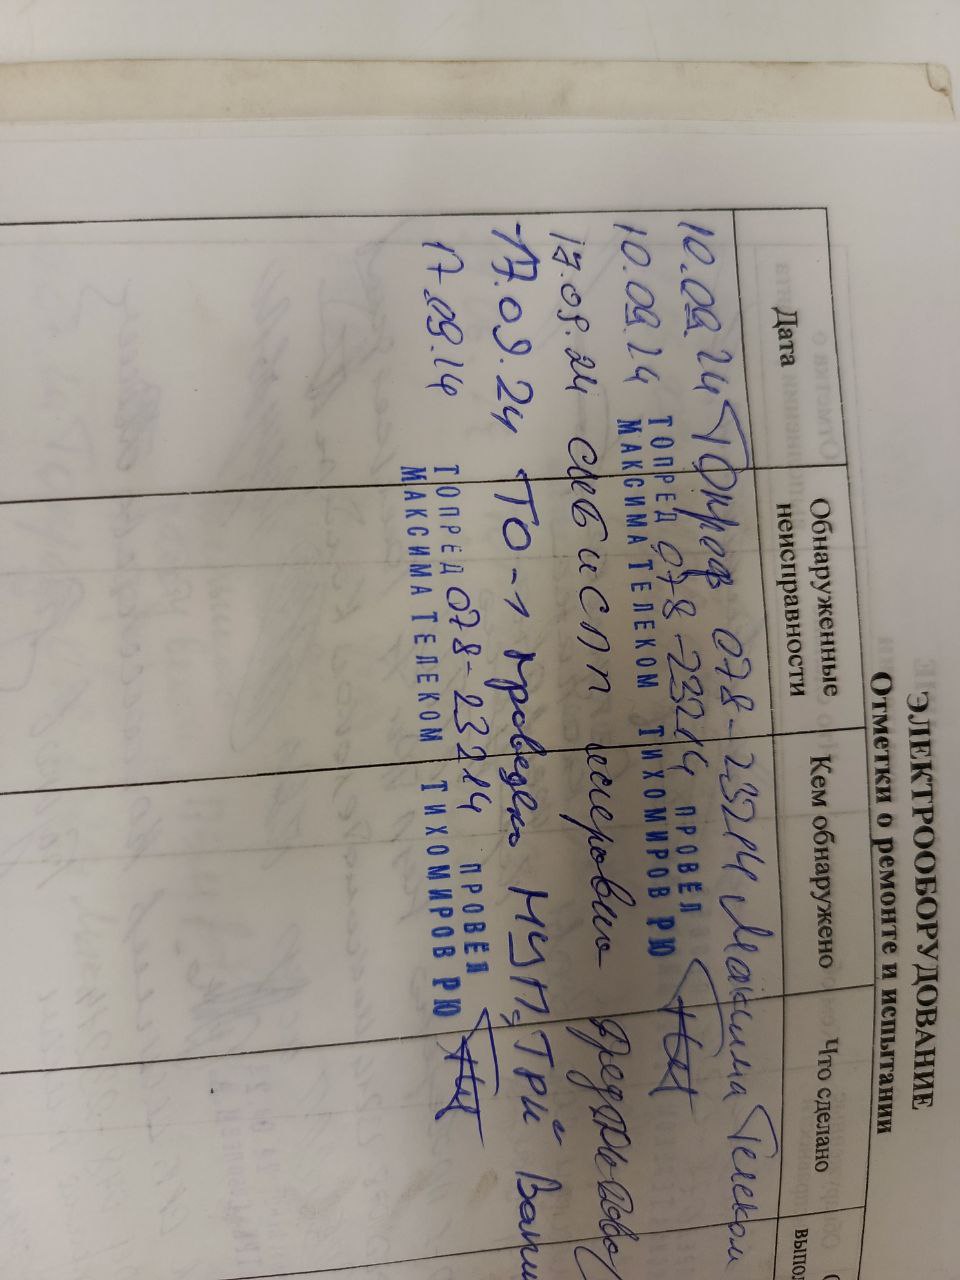 ЭЛЕКТРООБОРУДОВАНИЕ
Отметки о ремонте и испытании
Дата
Обнаруженные неисправности
Кем обнаружено
Что сделано
10.09.24 ТОпроф 078-23214 Максима Телеком
10.09.24 ТОПРЕД 078-23214 ПРОВЕЛ
МАКСИМА ТЕЛЕКОМ ТИХОМИРОВ РЮ
17.09.24
17.09.24 ТО-1 проведен МУП "ТРИ"
17.09.24 ТОПРЕД 078-23214 ПРОВЕЛ
МАКСИМА ТЕЛЕКОМ ТИХОМИРОВ РЮ